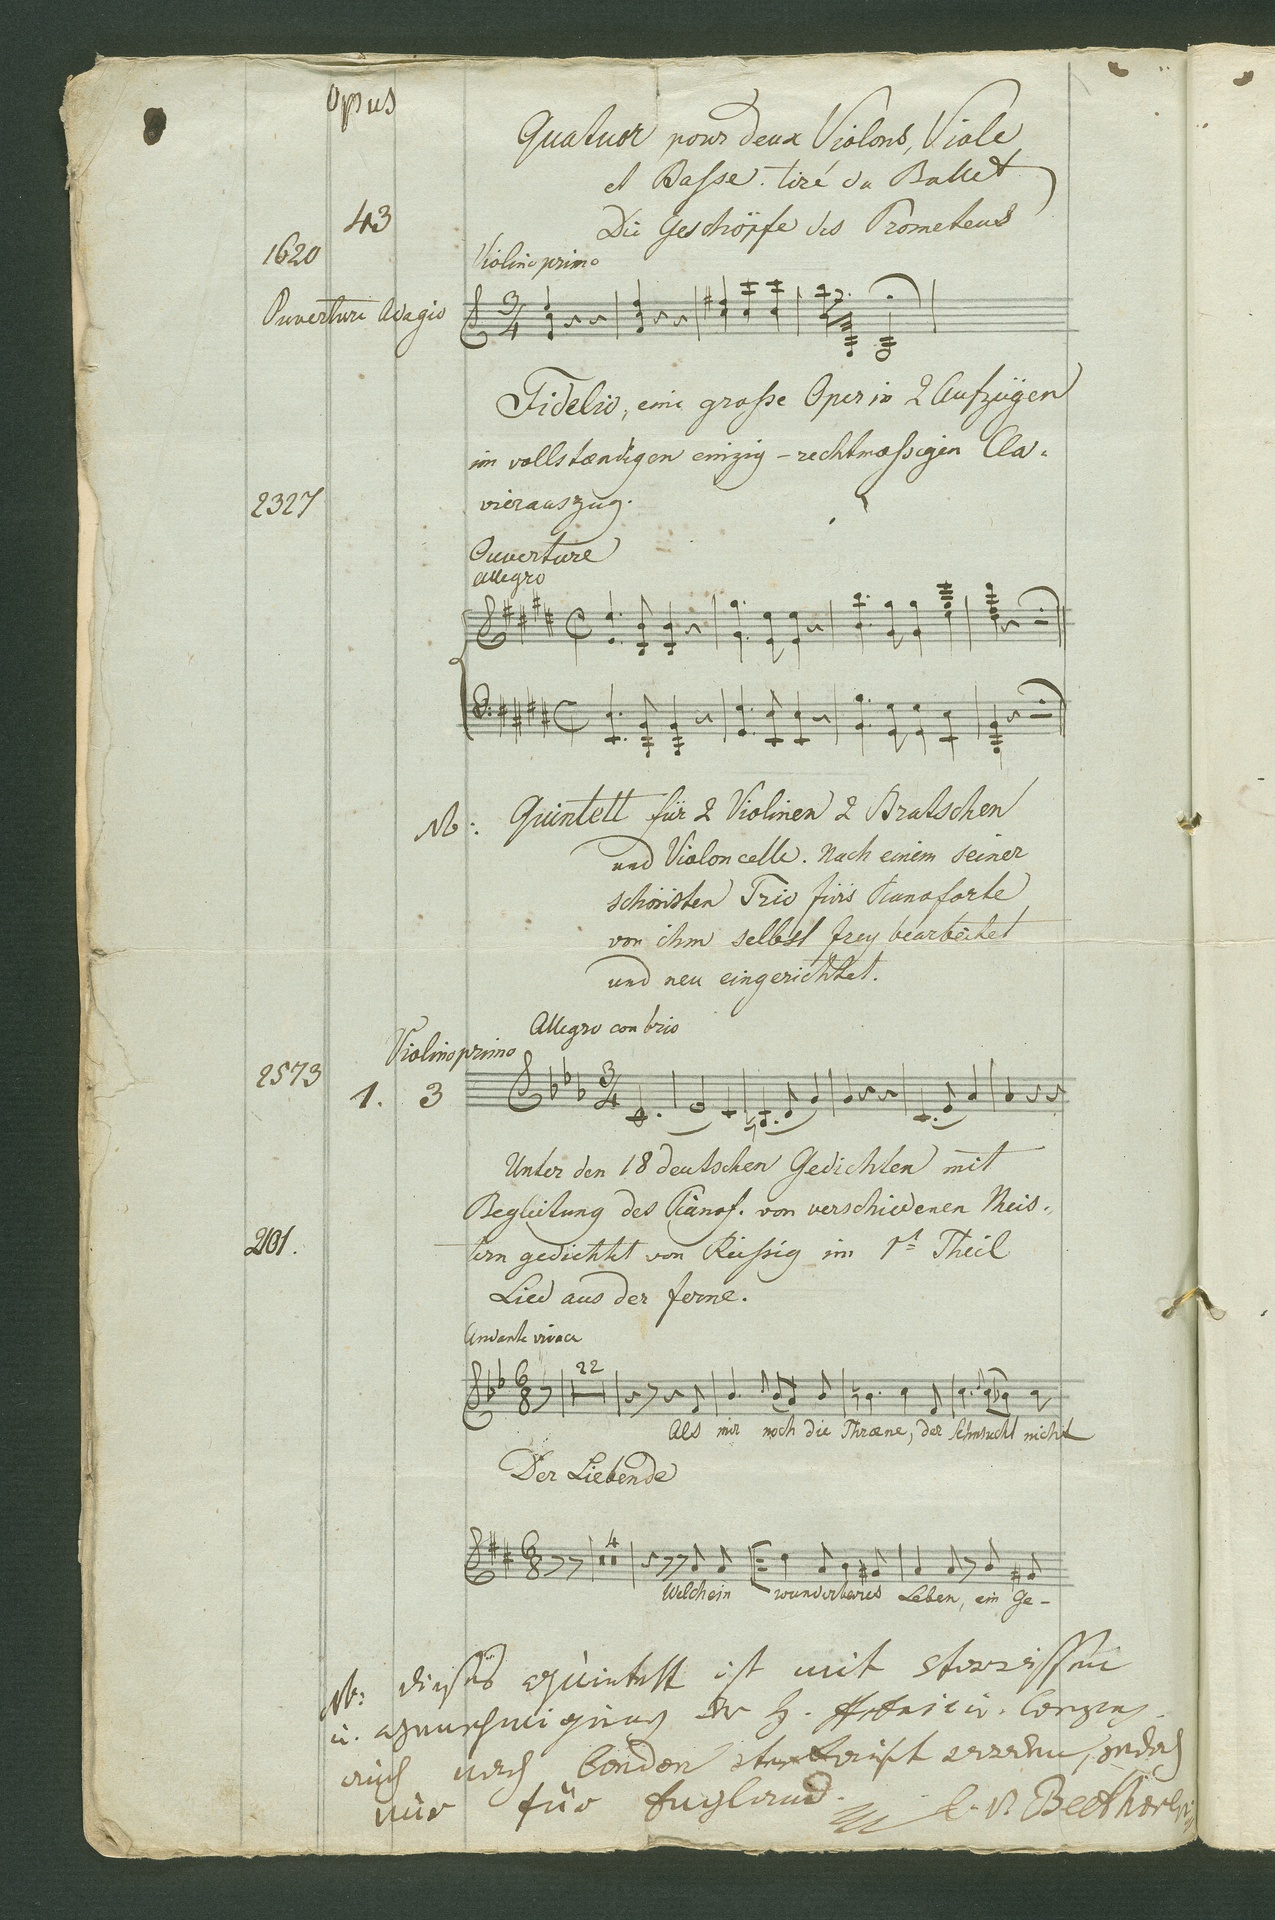 opus
Quatuor pour deux Violons, Viole
et Basse. tiré du Ballet
43
Die Geschöpfe des Prometeus
1620
Violino primo
Ouverture Adagio
3/4
Fidelio, eine große Oper in 2 Aufzügen
im vollstændigen einzig-rechtmæßigen Cla-
2327
vierauszug.
Ouverture
Allegro
Nb: Quintett für 2 Violinen 2 Bratschen
und Violoncelle. Nach einem seiner
schönsten Trio fürs Pianoforte
von ihm selbst frey bearbeitet
und neu eingerichtet.
Allegro con brio
Violino primo
2573
1. 3
3/4
Unter den 18 deutschen Gedichten mit
Begleitung des Pianof. von verschiedenen Meis-
2101. tern gedichtet von Reissig im 1t Theil
Lied aus der ferne.
Andante vivace
6/8 22
Als mir noch die Thræne, der Sehnsucht nicht
Der Liebende
6/8 4
Welch ein wunderbares Leben, ein Ge-
Nb: dieses Quintett ist mit
u. Genehmigung der H.
auch nach London worden, jedoch
nur für England.
L. v. Beethoven